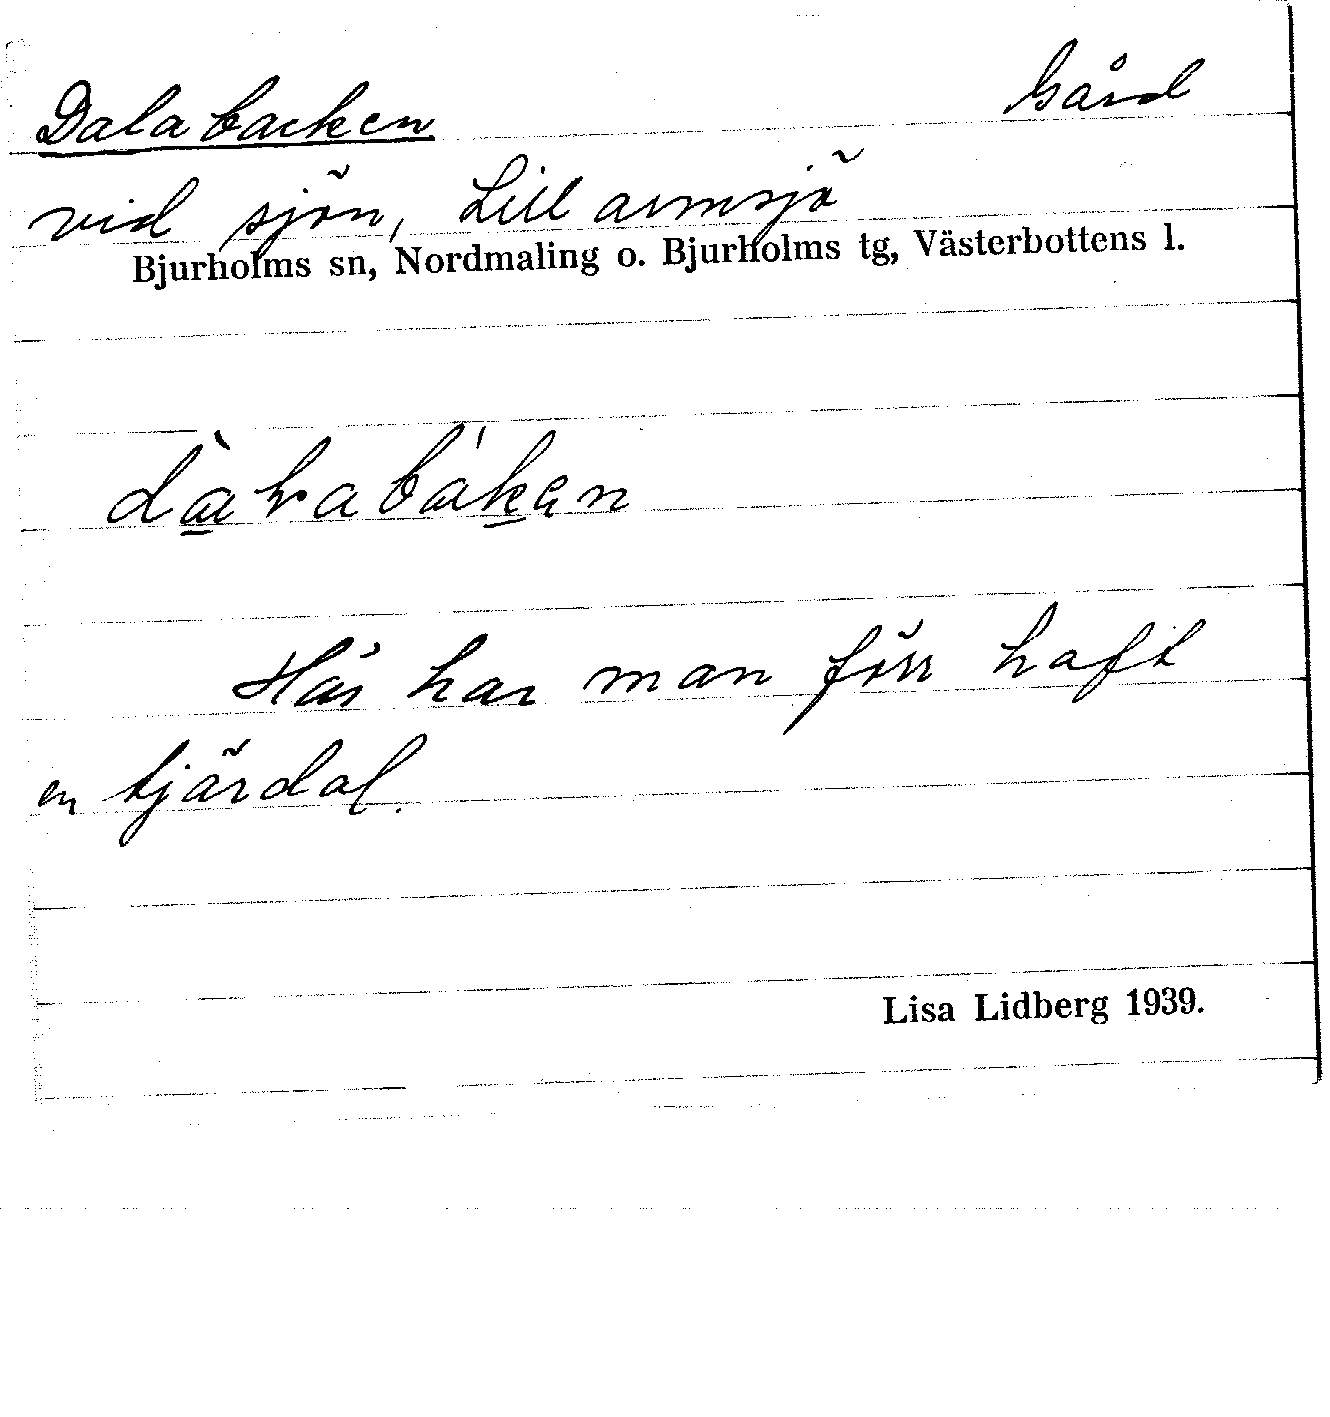 Dalabacken Gård
vid sjön, Lillarmsjö
Bjurholms sn, Nordmaling o. Bjurholms tg, Västerbottens l.
Här har man förr haft
en tjärdal.
Lisa Lidberg 1939.